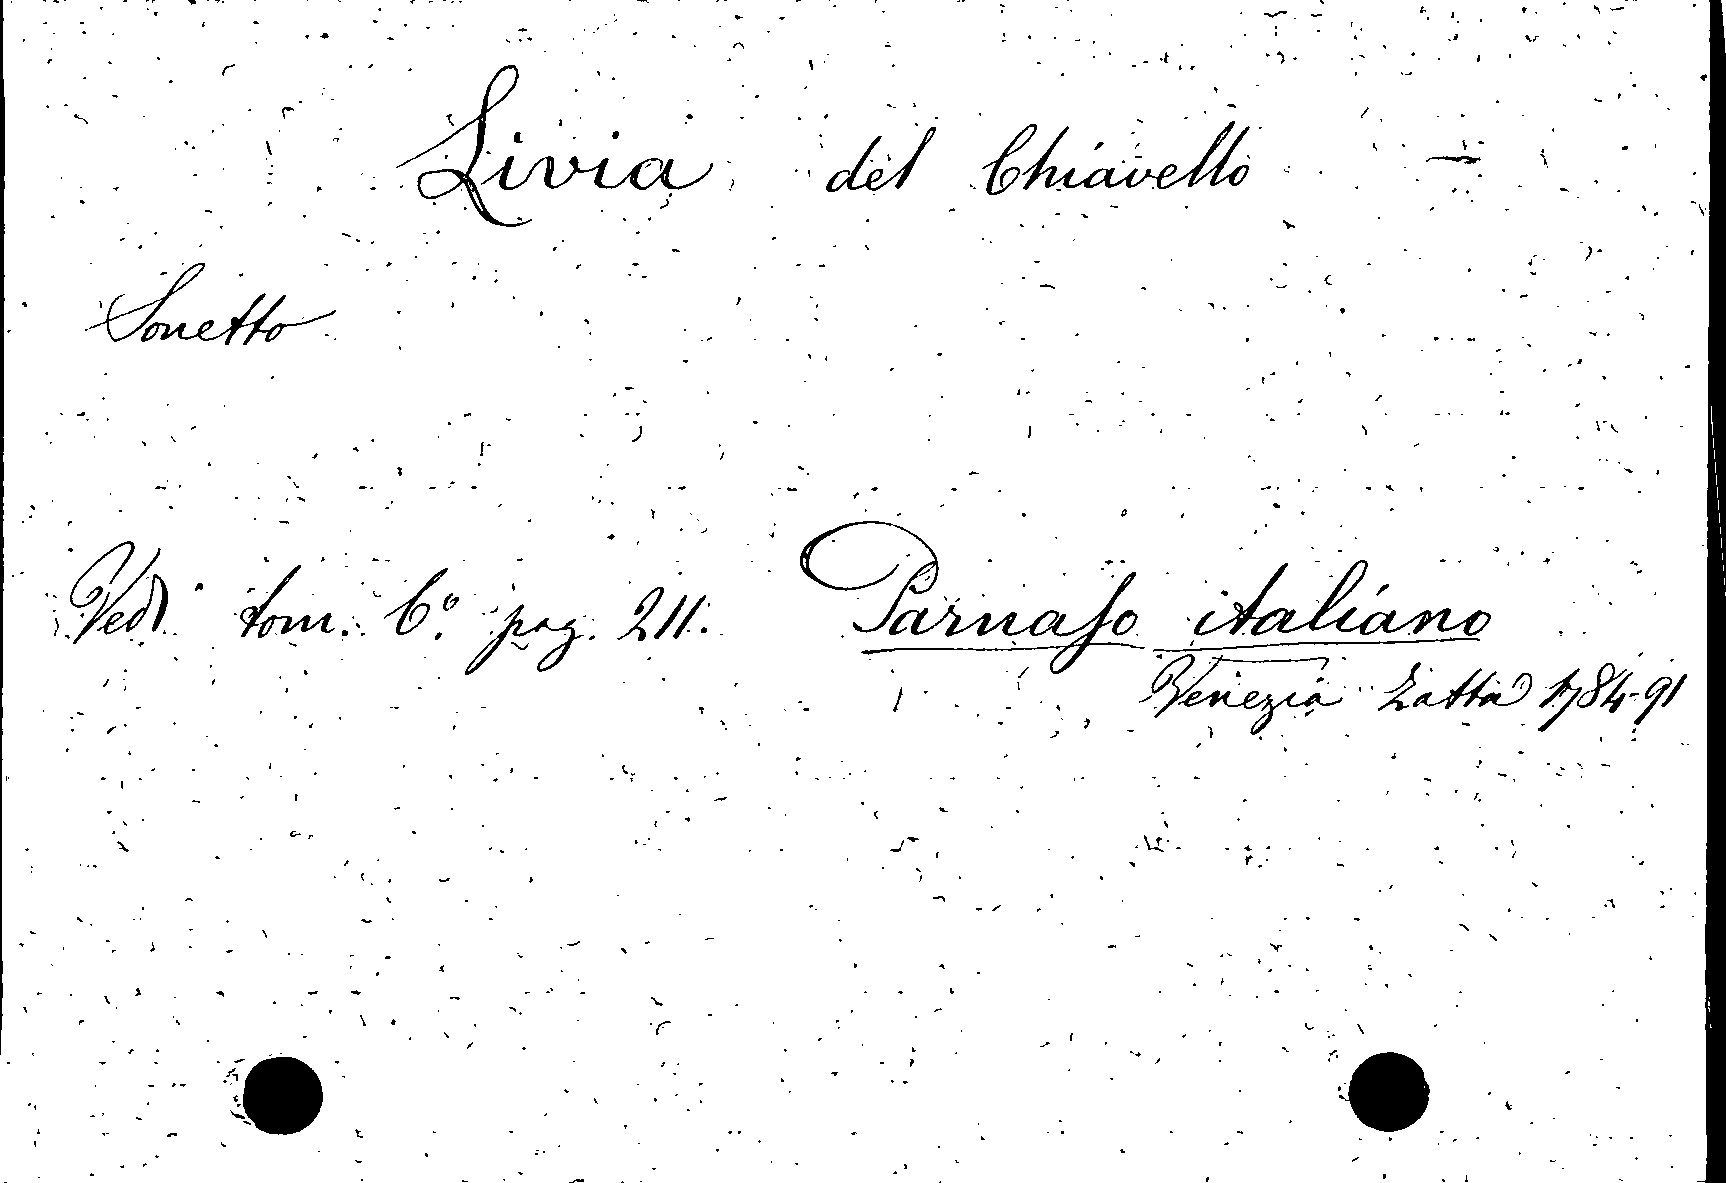 Livia del Chiavello —
Sonetto
Vedi tom. 6º. pag. 211. Parnaso italiano
Venezia Zatta 1784-91